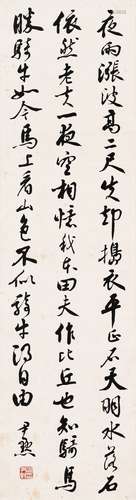 夜雨漲波高二尺失却擣衣平正石天明水落石
依然老夫一夜空相憶我本田夫作比丘也知騎馬
勝騎牛如今馬上看山色不似騎牛得自由 尹默